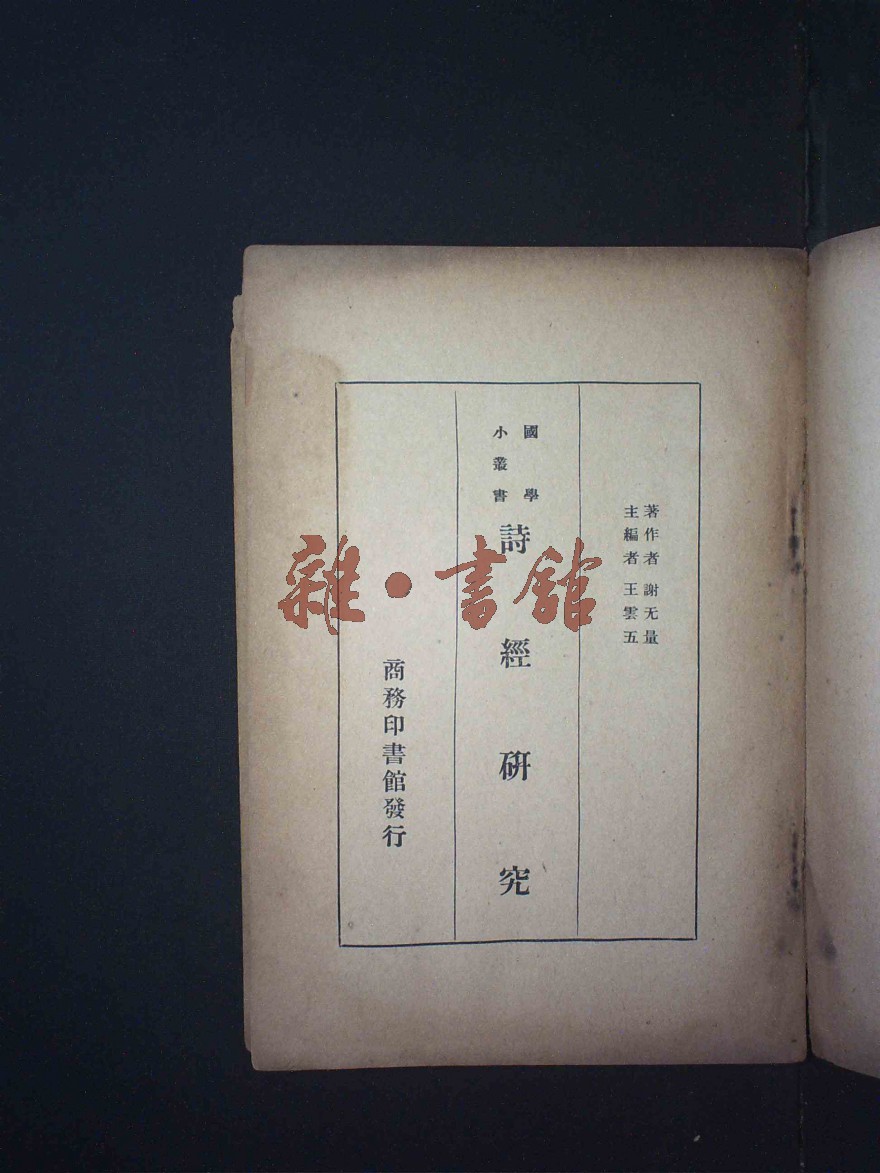 著作者 謝无量
主編者 王雲五
國學
小叢書
詩經研究
商務印書館發行
雜·書館